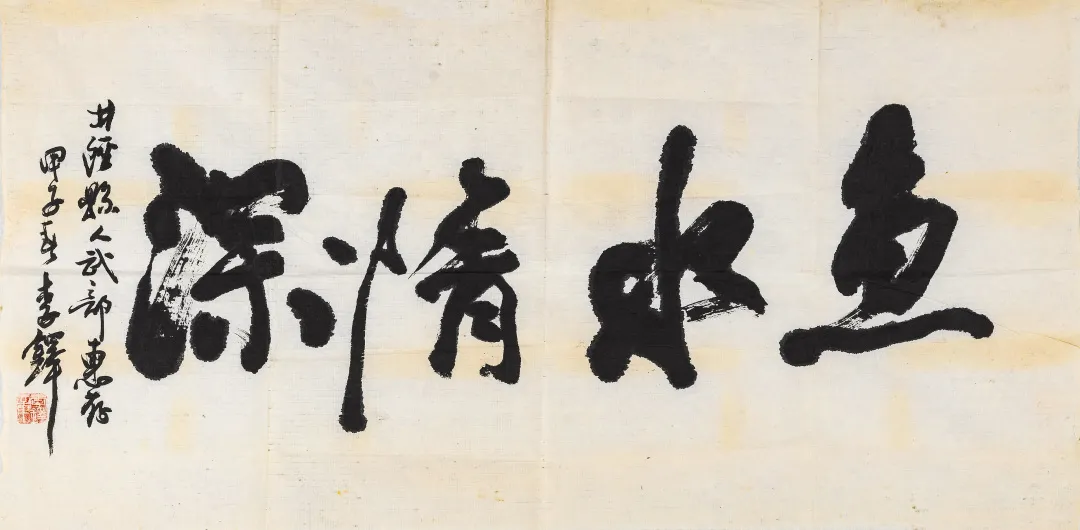 鱼水情深
井陉縣人武部惠存
甲子春李鐸